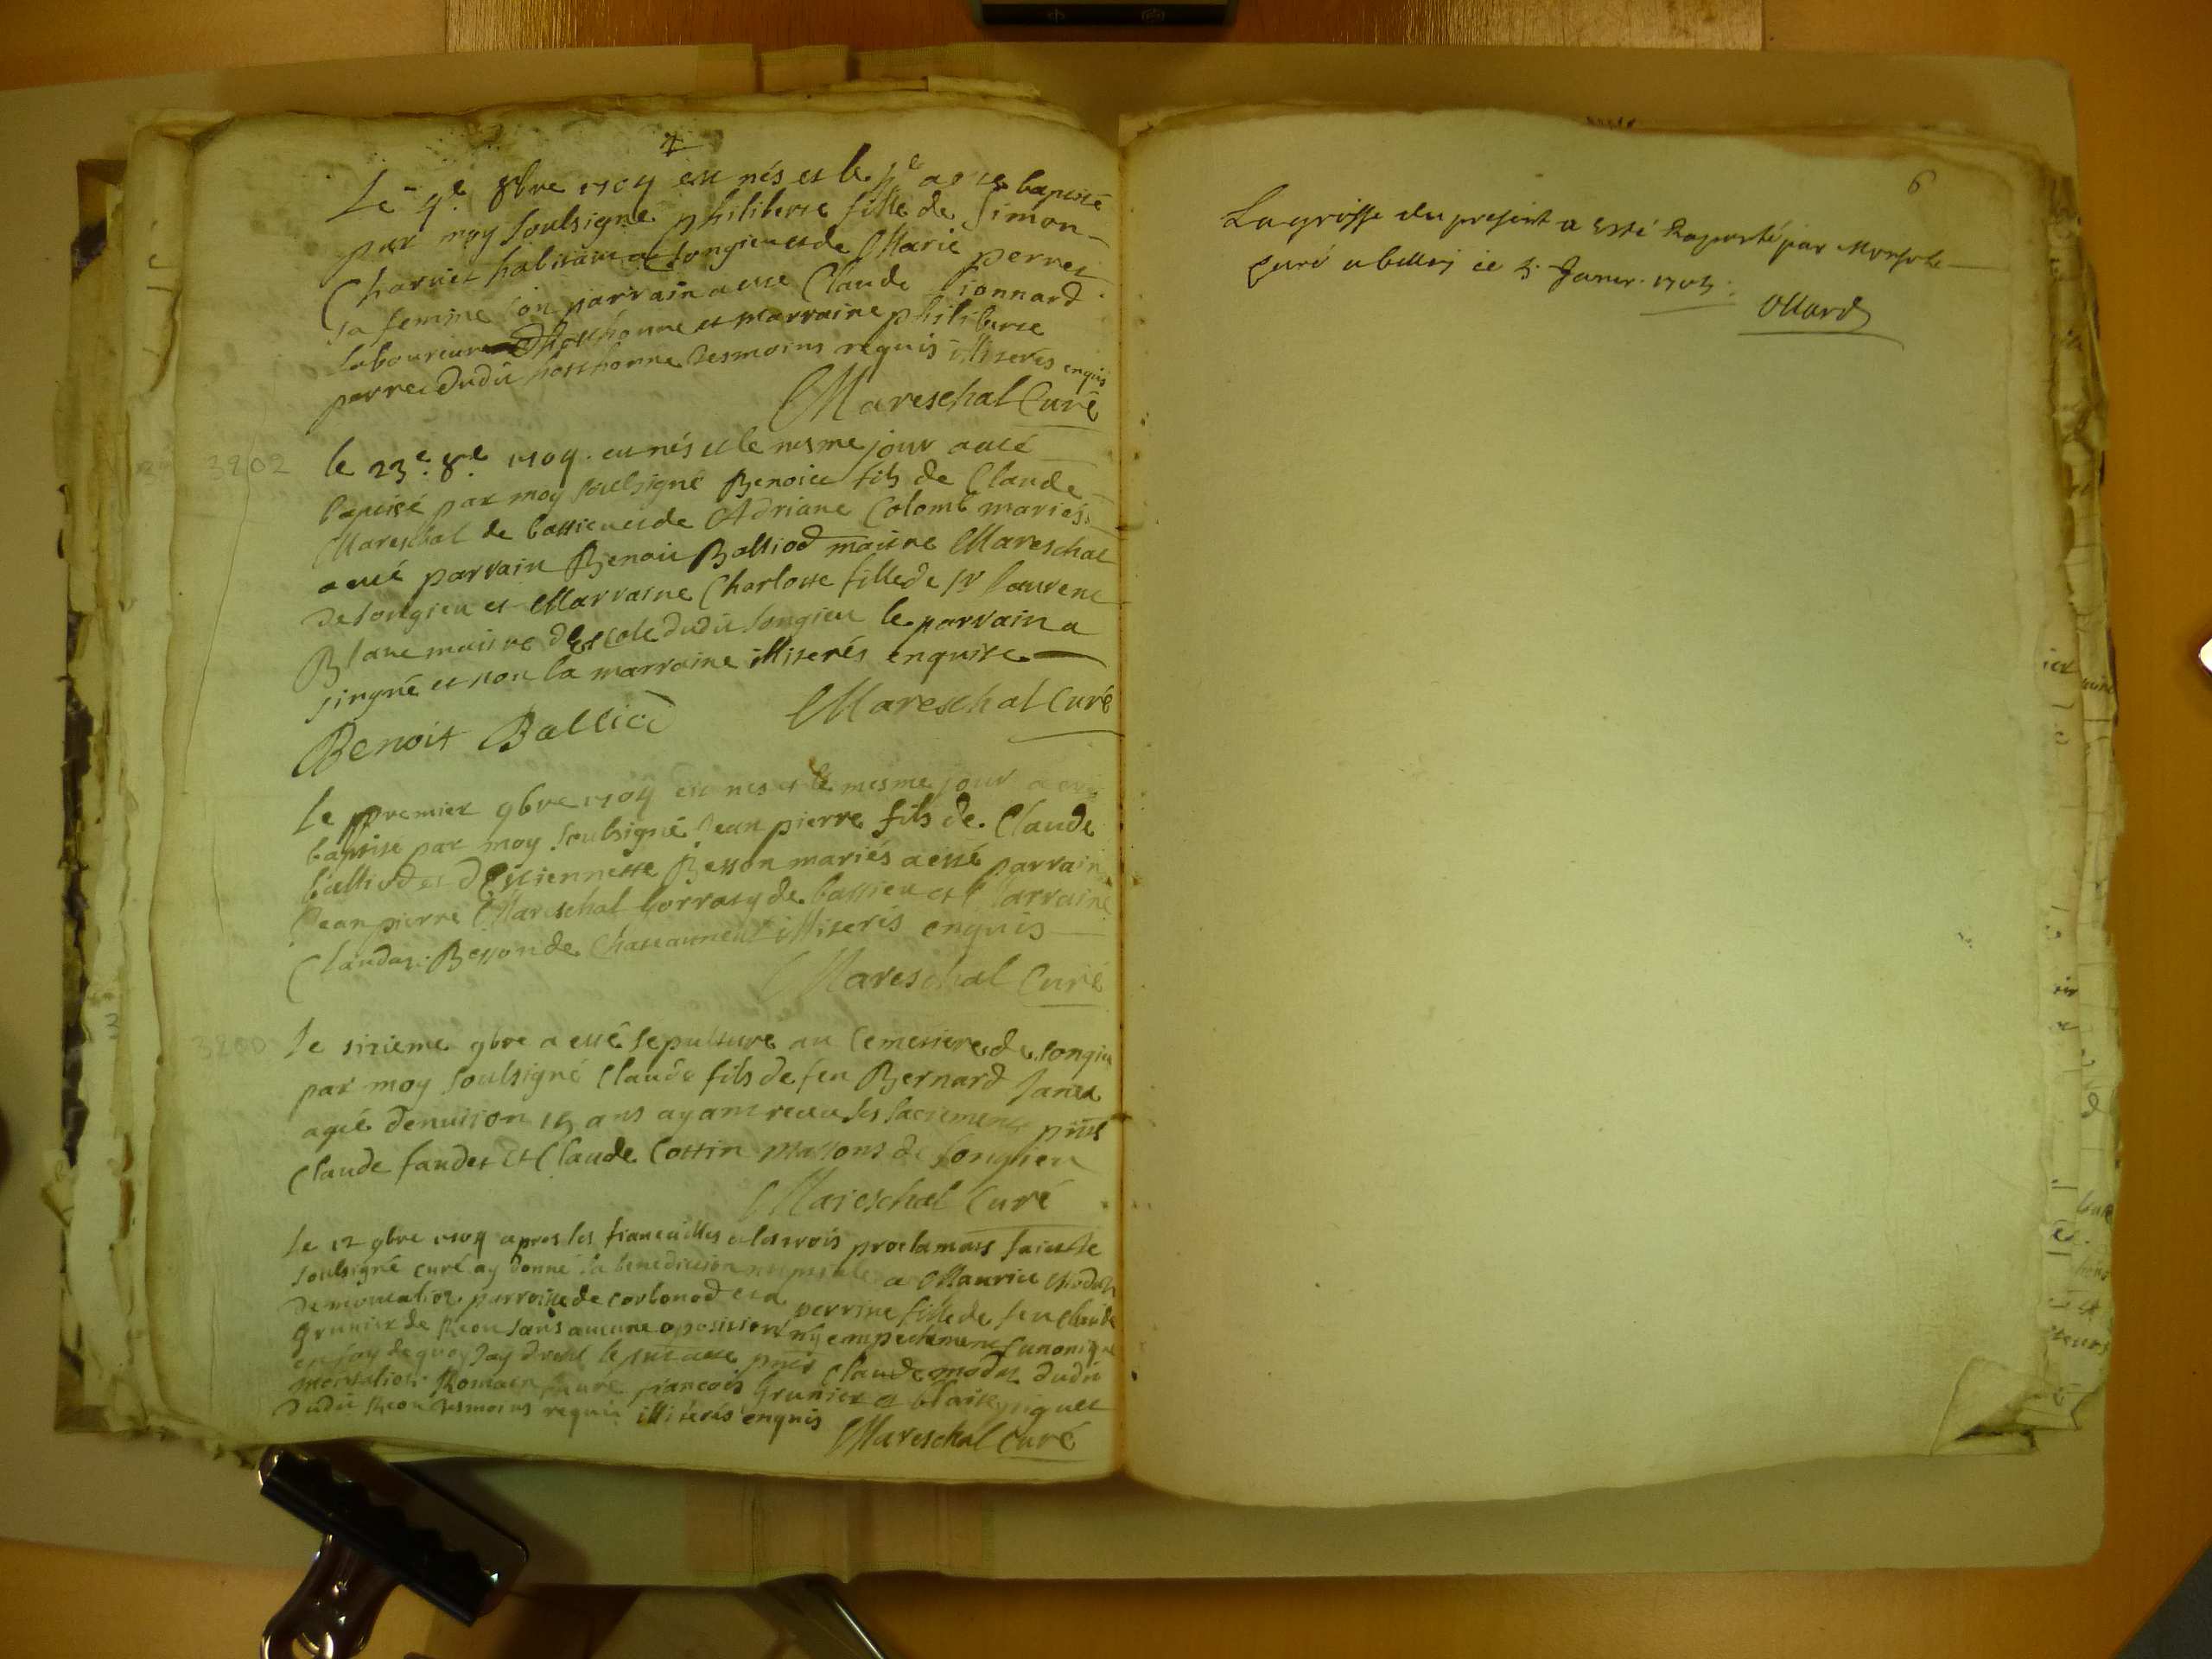 Le 4e 8bre 1704 est nés et le 5e a esté baptisé
par moy soubsigné philiberte fille de Simon
Charvet habitant a songieu et de Marie perret
sa femme son parrain a esté Claude Fionnard
laboureur d'hosthonne et marraine philiberte
perret dudit hosthonne tesmoins requis illiterés enquis
Mareschal Curé
3802
le 23e 8e 1704 est nés et le mesme jour a esté
baptisé par moy soubsigné Benoict fils de Claude
Mareschal de bassieu et de Adriane Colomb mariés
a esté parrain Benoit Balliod maitre Mareschal
de songieu et Marraine Charlotte fille de sr laurent
Blanc maitre d'escole dudit songieu le parrain a
singné et non la marraine illiterés enquise
Mareschal Curé
Benoit Balliod
le premier 9bre 1704 est nes et le mesme jour a esté
baptisé par moy soubsigné Jean pierre fils de Claude
balliod et d'Estiennette Besson mariés a esté parrain
Jean pierre Mareschal de bassieu et Marraine
Claudaz Besson de Chateauneuf illiterés enquis
Mareschal Curé
3800
Le sixieme 9bre a esté sepulturé au Cemetiere de songieu
par moy soubsigné Claude fils de feu Bernard Janex
agé d'environ 15 ans ayant receu les sacrements pnts
Claude faudet et Claude Cottin massons de songieu
Mareschal Curé
Le 12 9bre 1704 apres les fiancailles et les trois proclamats faicts Je
soubsigné curé ay donné la benediction nuptiale a Maurice Modaz
de montalioz parroisse de corbonod et a perrine fille de feu Claude
Grunier de sans aucune oposition ny empechement canonique
en foy de quoy Jay dressé le pnt acte pnts Claude modaz dudit
montalioz Romain françois Grunier et blaise
dudit tesmoins requis illiterés enquis
Mareschal Curé
6
La grosse du present a esté raportée par Monsr le
curé a belley ce 5 Janvr 1705
Ollard